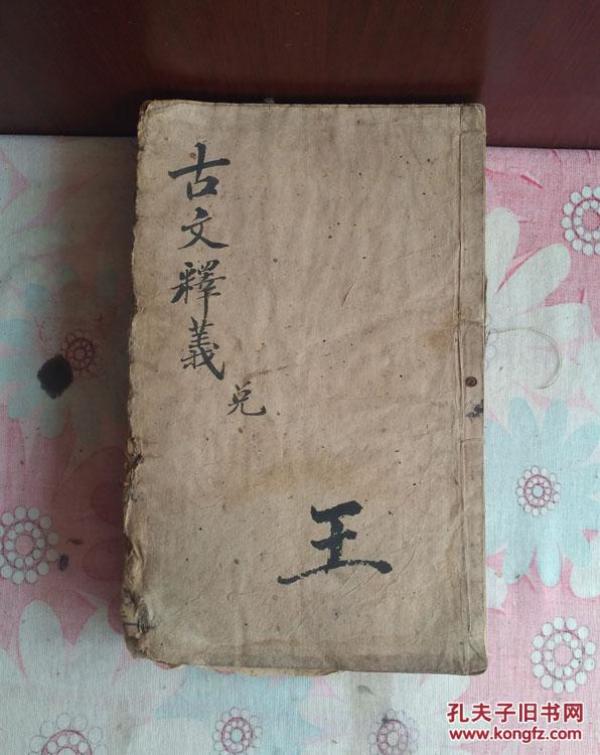 古文釋義
兑
王
孔夫子旧书网
www.kongfz.com